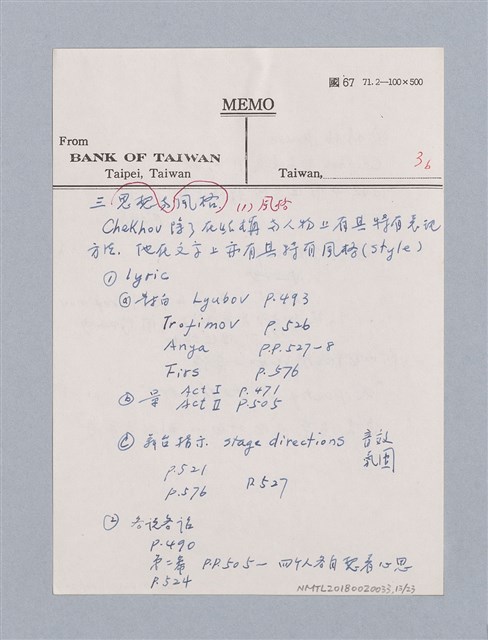 國 67 71.2—100×500
MEMO
From
BANK OF TAIWAN
Taipei, Taiwan
Taiwan,
3b
三 思想与風格 (1) 風格
Chekhov 除了在结構与人物上有其特有表现
方法. 他在文字上亦有其特有風格(style)
① lyric
ⓐ 對白 Lyubov p.493
Trofimov p.526
Anya p.p.527-8
Firs p.576
ⓑ 景 Act I p.471
Act II p.505
ⓒ 舞台指示 stage directions 音效
氛圍
p.521
p.576 p.527
② 各说各話
p.490
第二幕 p.p.505— 四个人各自想着心思
p.524
NMTL20180020033,13/23